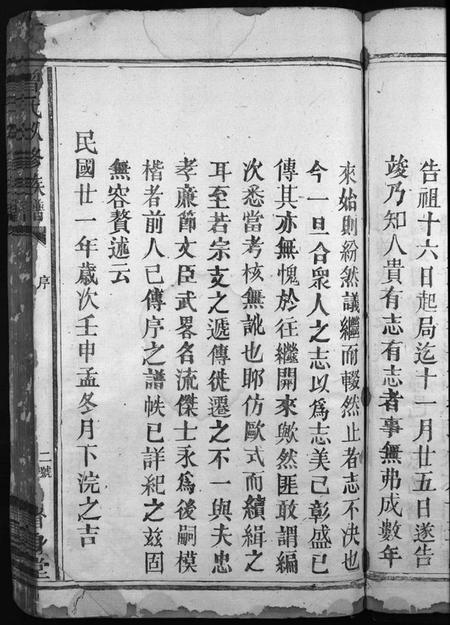 告祖十六日起局迄十一月廿五日遂告
竣乃知人貴有志有志者事無弗成數年
來始則紛然議繼而輟然止者志不決也
今一旦合衆人之志以為志美已彰盛已
傳其亦無愧於往繼開來歟然匪敢謂編
次悉當考核無訛也耶仿歐式而續緝之
耳至若宗支之遞傳徙遷之不一與夫忠
孝廉節文臣武畧名流傑士永為後嗣模
楷者前人已傳序之譜帙已詳紀之茲固
無容贅述云
民國廿一年歲次壬申孟冬月下浣之吉
氏必修族譜
序
二號
堂